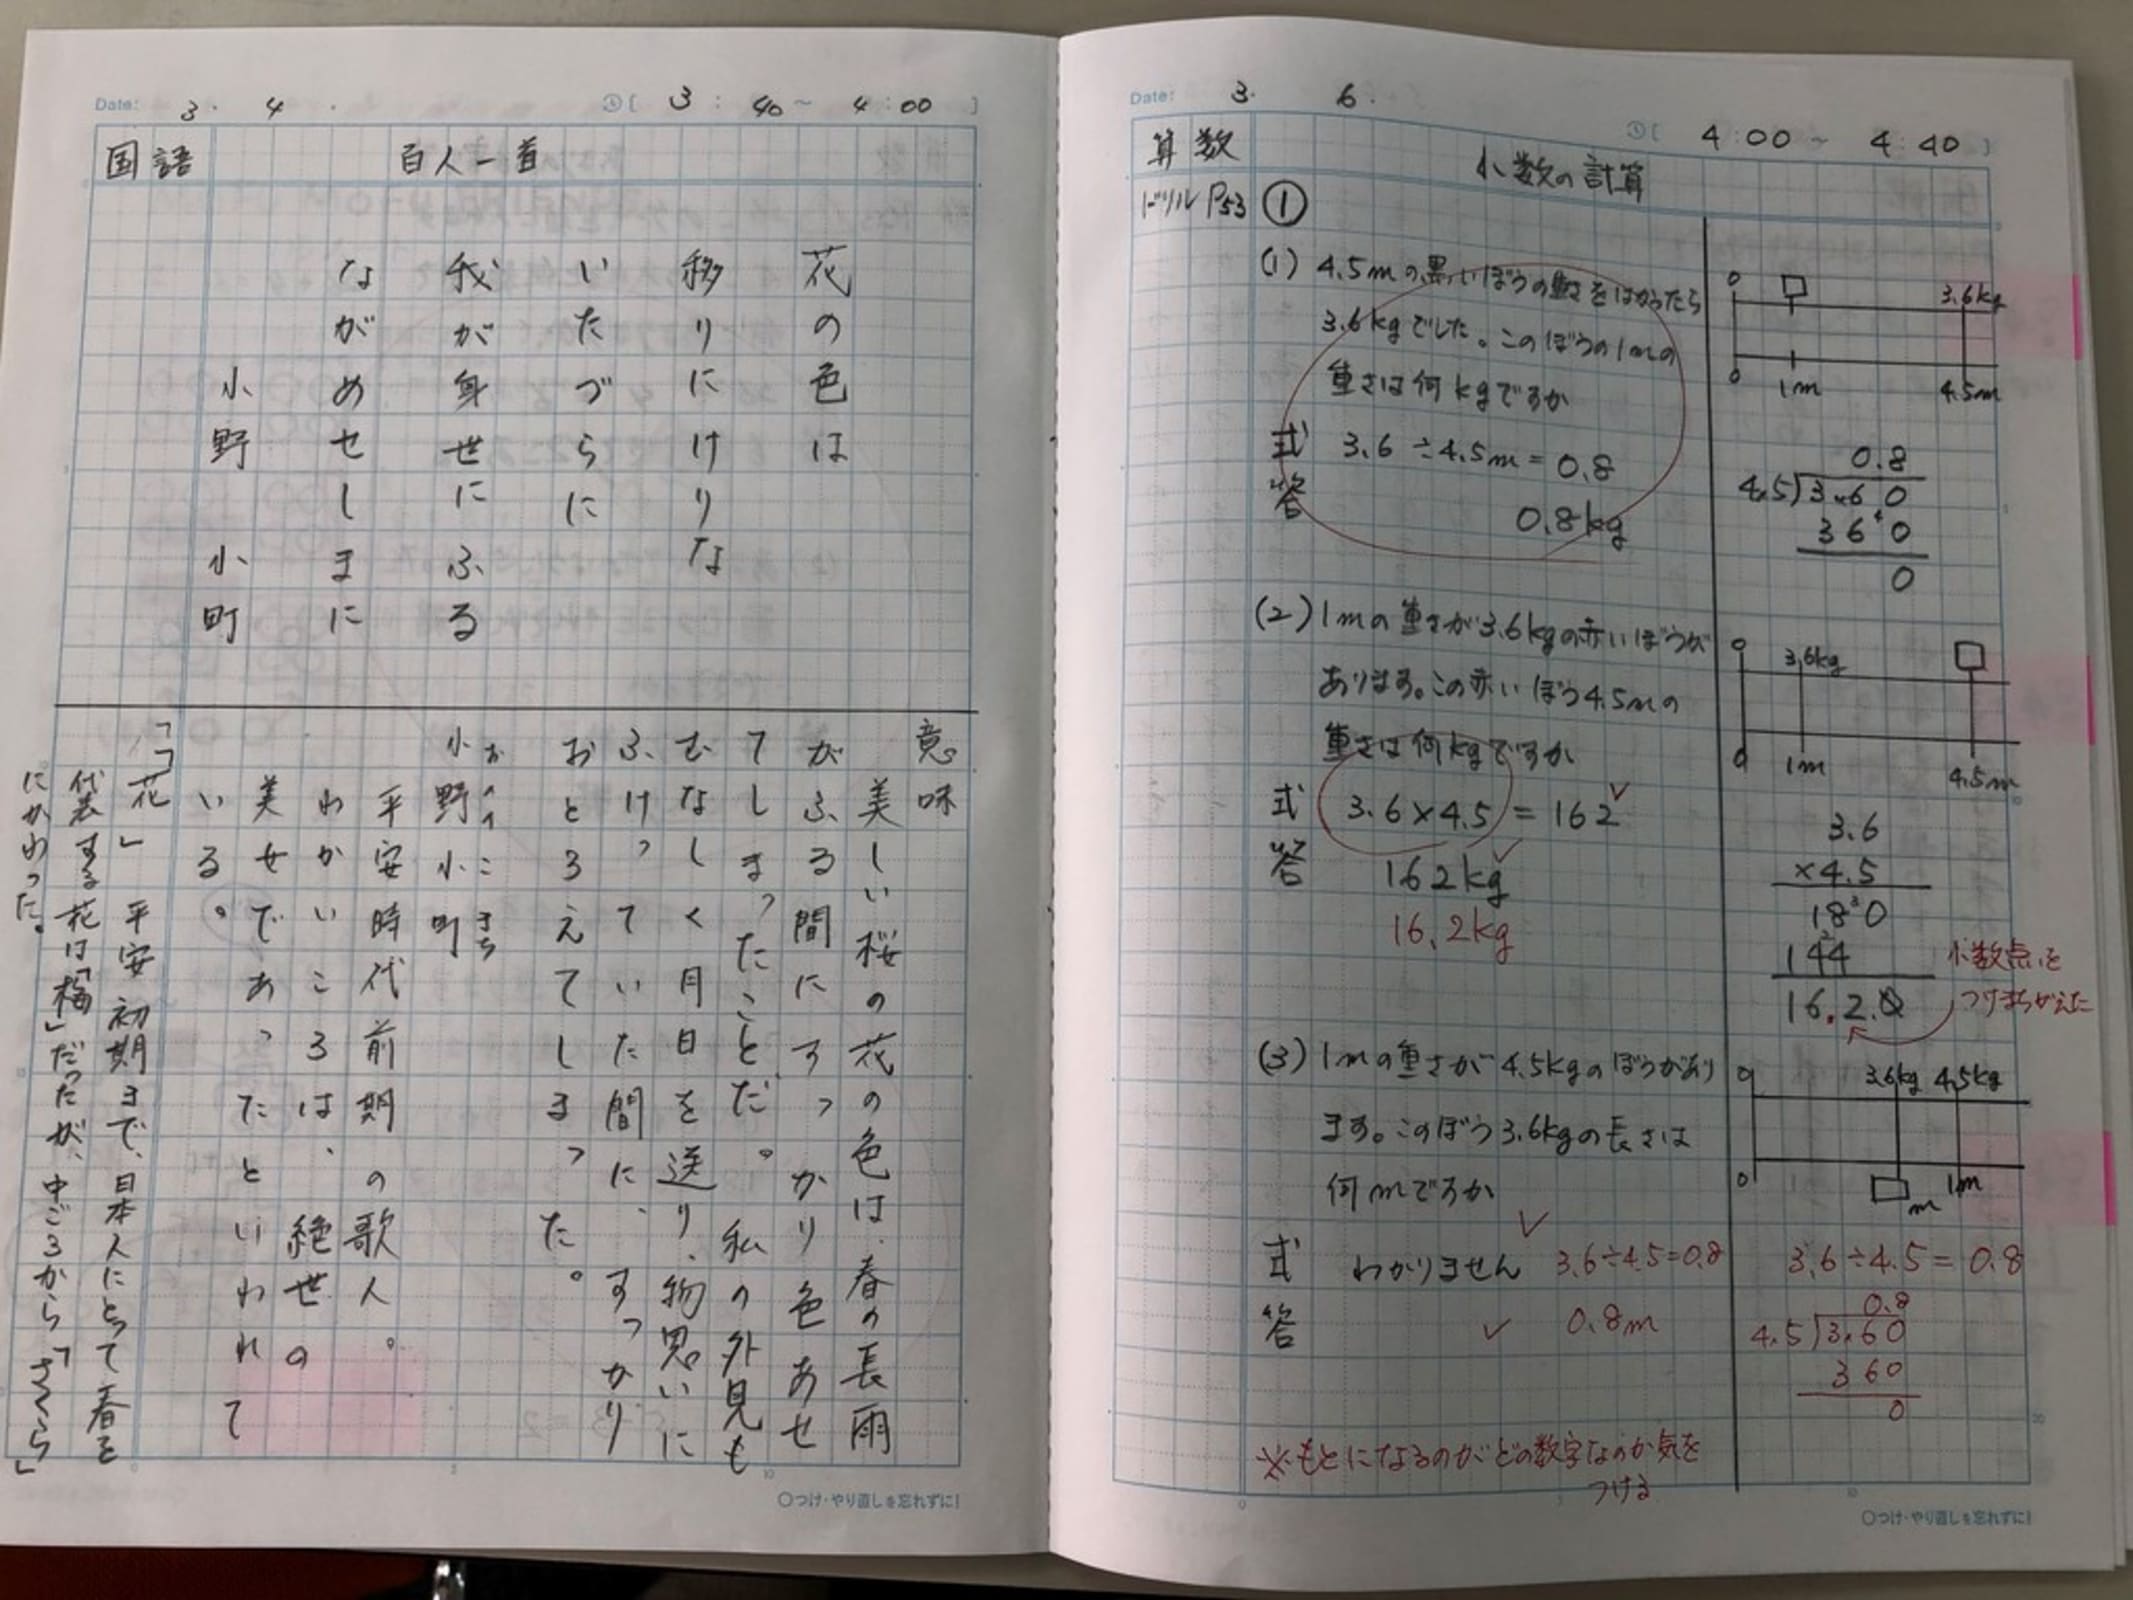 Date: 3. 4. [3:40~4:00]
国語 百人一首
花の色は
移りにけりな
いたづらに
我が身世にふる
ながめせしまに
小野小町
意味
美しい桜の花の色は、春の長雨
がふる間にすっかり色あせ
てしまったことだ。私の外見も
むなしく月日を送り、物思いに
ふけっていた間に、すっかり
おとろえてしまった。
おののこまち
小野小町
平安時代前期の歌人。
わかいころは、絶世の
美女であったといわれて
いる。
「花」平安初期まで、日本人にとって春を
代表する花は「梅」だったが、中ごろから「さくら」
にかわった。
○つけ・やり直しを忘れずに!
Date: 3. 6. [4:00~4:40]
算数 小数の計算
ドリルP53 ①
(1) 4.5mの黒いぼうの重さをはかったら
3.6kgでした。このぼうの1mの
重さは何kgですか
式 3.6÷4.5m=0.8
答 0.8kg
0 3.6kg
0 1m 4.5m
0.8
4.5)3.60
360
0
(2) 1mの重さが3.6kgの赤いぼうが
あります。この赤いぼう4.5mの
重さは何kgですか
式 3.6×4.5=162
答 162kg
16.2kg
0 3.6kg
0 1m 4.5m
3.6
×4.5
180
144
16.2.0
小数点を
つけまちがえた
(3) 1mの重さが4.5kgのぼうがあり
ます。このぼう3.6kgの長さは
何mですか
式 わかりません 3.6÷4.5=0.8
答 0.8m
0 3.6kg 4.5kg
0 m 1m
3.6÷4.5=0.8
0.8
4.5)3.60
360
0
※もとになるのがどの数字なのか気を
つける
○つけ・やり直しを忘れずに!